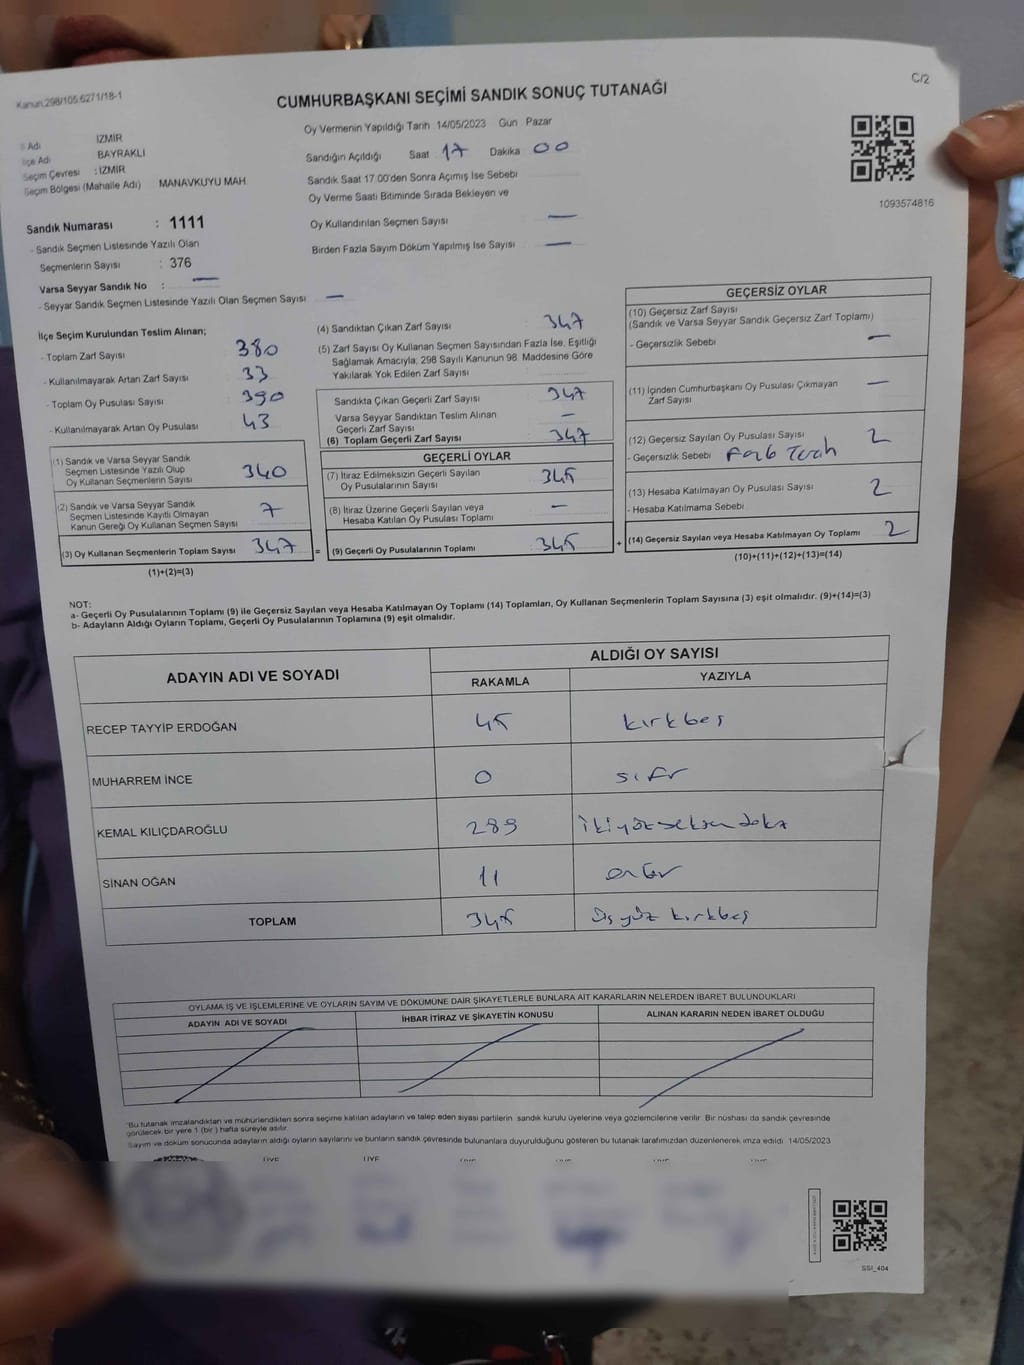 Kanun;298/105;6271/18-1
C/2
CUMHURBAŞKANI SEÇİMİ SANDIK SONUÇ TUTANAĞI
İl Adı İZMİR
İlçe Adı BAYRAKLI
Seçim Çevresi : İZMİR
Seçim Bölgesi (Mahalle Adı) MANAVKUYU MAH.
Sandık Numarası : 1111
- Sandık Seçmen Listesinde Yazılı Olan
Seçmenlerin Sayısı : 376
Varsa Seyyar Sandık No : —
- Seyyar Sandık Seçmen Listesinde Yazılı Olan Seçmen Sayısı —
Oy Vermenin Yapıldığı Tarih 14/05/2023 Gün Pazar
Sandığın Açıldığı Saat 17 Dakika 00
Sandık Saat 17:00'den Sonra Açımış İse Sebebi
Oy Verme Saati Bitiminde Sırada Bekleyen ve
Oy Kullandırılan Seçmen Sayısı —
Birden Fazla Sayım Döküm Yapılmış İse Sayısı —
1093574816
İlçe Seçim Kurulundan Teslim Alınan;
- Toplam Zarf Sayısı 380
- Kullanılmayarak Artan Zarf Sayısı 33
- Toplam Oy Pusulası Sayısı 390
- Kullanılmayarak Artan Oy Pusulası 43
(1) Sandık ve Varsa Seyyar Sandık
Seçmen Listesinde Yazılı Olup
Oy Kullanan Seçmenlerin Sayısı 340
(2) Sandık ve Varsa Seyyar Sandık
Seçmen Listesinde Kayıtlı Olmayan
Kanun Gereği Oy Kullanan Seçmen Sayısı 7
(3) Oy Kullanan Seçmenlerin Toplam Sayısı 347
(1)+(2)=(3)
(4) Sandıktan Çıkan Zarf Sayısı 347
(5) Zarf Sayısı Oy Kullanan Seçmen Sayısından Fazla İse, Eşitliği
Sağlamak Amacıyla; 298 Sayılı Kanunun 98. Maddesine Göre
Yakılarak Yok Edilen Zarf Sayısı
Sandıkta Çıkan Geçerli Zarf Sayısı 347
Varsa Seyyar Sandıktan Teslim Alınan
Geçerli Zarf Sayısı —
(6) Toplam Geçerli Zarf Sayısı 347
GEÇERLİ OYLAR
(7) İtiraz Edilmeksizin Geçerli Sayılan
Oy Pusulalarının Sayısı 345
(8) İtiraz Üzerine Geçerli Sayılan veya
Hesaba Katılan Oy Pusulası Toplamı —
= (9) Geçerli Oy Pusulalarının Toplamı 345
GEÇERSİZ OYLAR
(10) Geçersiz Zarf Sayısı
(Sandık ve Varsa Seyyar Sandık Geçersiz Zarf Toplamı)
- Geçersizlik Sebebi —
(11) İçinden Cumhurbaşkanı Oy Pusulası Çıkmayan
Zarf Sayısı —
(12) Geçersiz Sayılan Oy Pusulası Sayısı 2
- Geçersizlik Sebebi
(13) Hesaba Katılmayan Oy Pusulası Sayısı 2
- Hesaba Katılmama Sebebi
+ (14) Geçersiz Sayılan veya Hesaba Katılmayan Oy Toplamı 2
(10)+(11)+(12)+(13)=(14)
NOT:
a- Geçerli Oy Pusulalarının Toplamı (9) ile Geçersiz Sayılan veya Hesaba Katılmayan Oy Toplamı (14) Toplamları, Oy Kullanan Seçmenlerin Toplam Sayısına (3) eşit olmalıdır. (9)+(14)=(3)
b- Adayların Aldığı Oyların Toplamı, Geçerli Oy Pusulalarının Toplamına (9) eşit olmalıdır.
ADAYIN ADI VE SOYADI
ALDIĞI OY SAYISI
RAKAMLA YAZIYLA
RECEP TAYYİP ERDOĞAN 45 kırkbeş
MUHARREM İNCE 0 sıfır
KEMAL KILIÇDAROĞLU 289 ikiyüzseksen dokuz
SİNAN OĞAN 11 onbir
TOPLAM 345 üçyüz kırkbeş
OYLAMA İŞ VE İŞLEMLERİNE VE OYLARIN SAYIM VE DÖKÜMÜNE DAİR ŞİKAYETLERLE BUNLARA AİT KARARLARIN NELERDEN İBARET BULUNDUKLARI
ADAYIN ADI VE SOYADI İHBAR İTİRAZ VE ŞİKAYETİN KONUSU ALINAN KARARIN NEDEN İBARET OLDUĞU
"Bu tutanak imzalandıktan ve mühürlendikten sonra seçime katılan adayların ve talep eden siyasi partilerin sandık kurulu üyelerine veya gözlemcilerine verilir. Bir nüshası da sandık çevresinde
görülecek bir yere 1 (bir ) hafta süreyle asılır.
Sayım ve döküm sonucunda adayların aldığı oyların sayılarını ve bunların sandık çevresinde bulunanlara duyurulduğunu gösteren bu tutanak tarafımızdan düzenlenerek imza edildi. 14/05/2023
ÜYE ÜYE
SSI_404